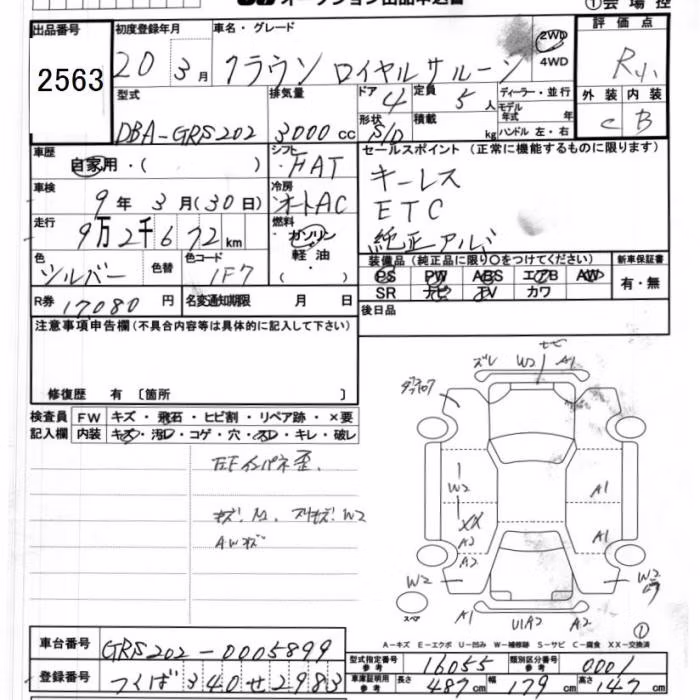 オークション出品申込書
①会場控
出品番号 初度登録年月 車名・グレード 評価点
2563 20 3月 クラウン ロイヤルサルーン 2WD 4WD R小
型式 排気量 ドア 4 定員 5人 ディーラー・並行 外装 内装
DBA-GRS202 3000cc 形状 S/D 積載 kg モデル年式 年 ハンドル 左・右 C B
車歴 自家用・( ) シフト FAT セールスポイント (正常に機能するものに限ります)
車検 9年 3月(30日) 冷房 オートAC キーレス
走行 9万2千672km 燃料 ガソリン 軽油 ・( ) ETC
純正アルミ
色 シルバー 色替 色コード 1F7 装備品(純正品に限り○をつけてください) 新車保証書
PS PW ABS エアB AW 有・無
SR ナビ TV カワ
R券 17080円 名変通知期限 月 日 後日品
注意事項申告欄(不具合内容等は具体的に記入して下さい)
修復歴 有 〔箇所 〕
検査員 FW キズ・飛石・ヒビ割・リペア跡・×要
記入欄 内装 キズ・汚レ・コゲ・穴・スレ・キレ・破レ
AWキズ
ズレ W2 A1
W2 A1
XX A1
A2
A2
W2 W2
スペア A1 U1A2 A2
①
A-キズ E-エクボ U-凹み W-補修跡 S-サビ C-腐食 XX-交換済
車台番号 GRS202-0005899
型式指定番号 参考 16055 類別区分番号 参考 0001
登録番号 つくば 340 せ 2983
車庫証明用 参考 長さ 487cm 幅 179cm 高さ 147cm